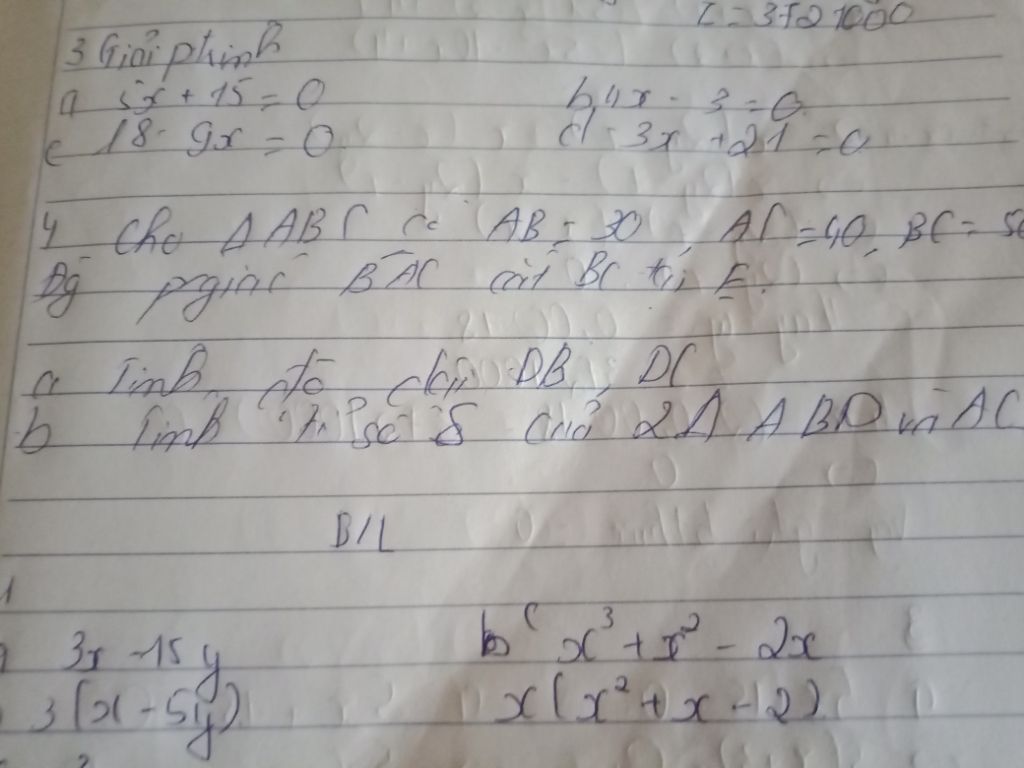 3 Giải ptrình
a 5x + 15 = 0 b, 4x - 3 = 0
c 18 - 9x = 0 d - 3x + 21 = 0
4 Cho Δ ABC có AB = 30, AC = 40, BC = 50
pgiác BAC cắt BC tại E.
a Tính độ dài DB, DC
b Tính tỉ số S của 2 Δ ABD và AC
B/L
1
a 3x - 15y b c x³ + x² - 2x
3(x - 5y) x(x² + x - 2)